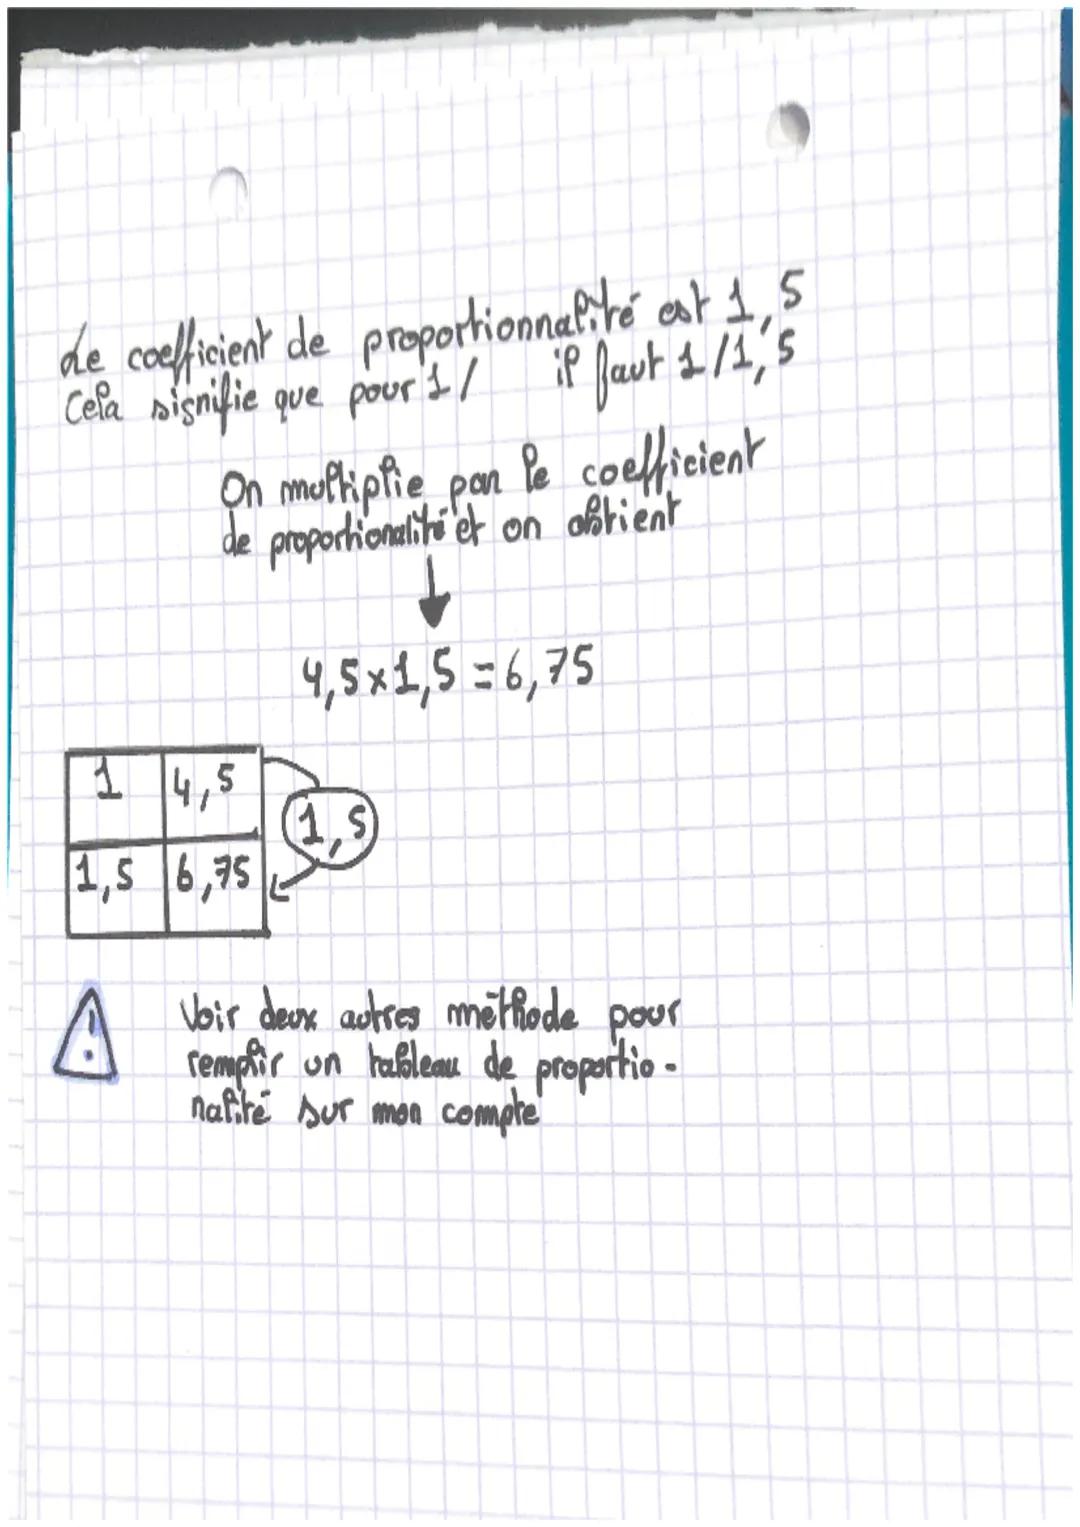 Le coefficient de proportionnalité est 1,5
Cela signifie que pour 1/ il faut 1/1,5
On multiplie par le coefficient
de proportionalité et on obtient
4,5x1,5 = 6,75
1 4,5
1,5
1,5 6,75
Voir deux autres méthode pour
remplir un tableau de proportio-
nalité sur mon compte